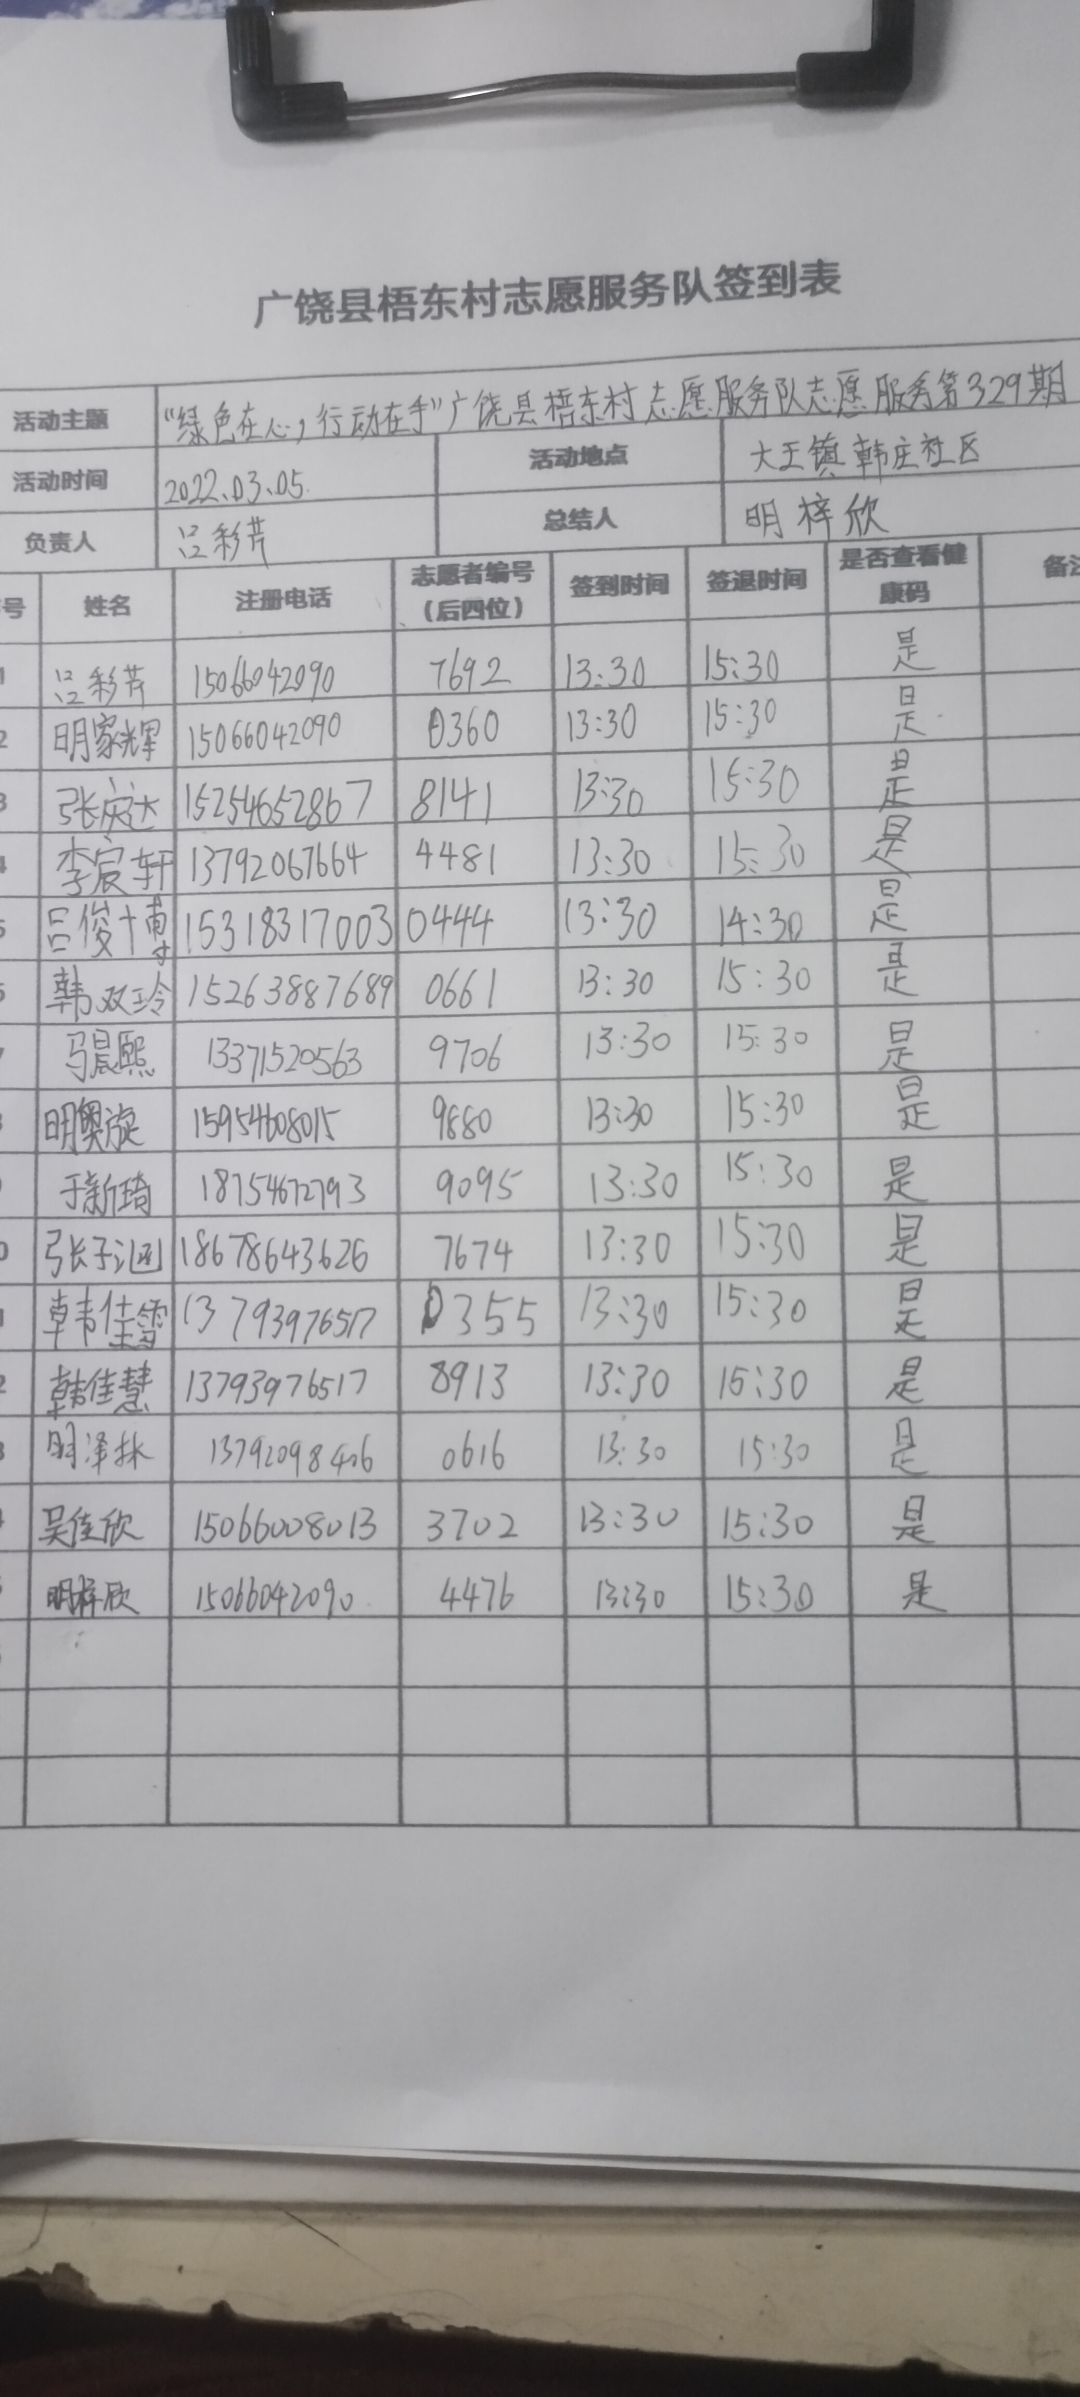 广饶县梧东村志愿服务队签到表
活动主题 “绿色在心,行动在手”广饶县梧东村志愿服务队志愿服务第329期
活动时间 2022.03.05. 活动地点 大王镇韩庄社区
负责人 吕彩芹 总结人 明梓欣
号 姓名 注册电话 志愿者编号（后四位） 签到时间 签退时间 是否查看健康码 备注
1 吕彩芹 15066042090 7692 13:30 15:30 是
2 明家辉 15066042090 0360 13:30 15:30 是
3 张庆达 15254652867 8141 13:30 15:30 是
4 李宸轩 13792067664 4481 13:30 15:30 是
5 吕俊博 15318317003 0444 13:30 14:30 是
韩双玲 15263887689 0661 13:30 15:30 是
7 马晨熙 13371520563 9706 13:30 15:30 是
明奥旋 15954608015 9880 13:30 15:30 是
于新琦 18754672793 9095 13:30 15:30 是
0 张子涵 18678643626 7674 13:30 15:30 是
1 韩佳雪 13793976517 0355 13:30 15:30 是
2 韩佳慧 13793976517 8913 13:30 15:30 是
3 明泽林 13792098406 0616 13:30 15:30 是
4 吴佳欣 15066008013 3702 13:30 15:30 是
明梓欣 15066042090 4476 13:30 15:30 是